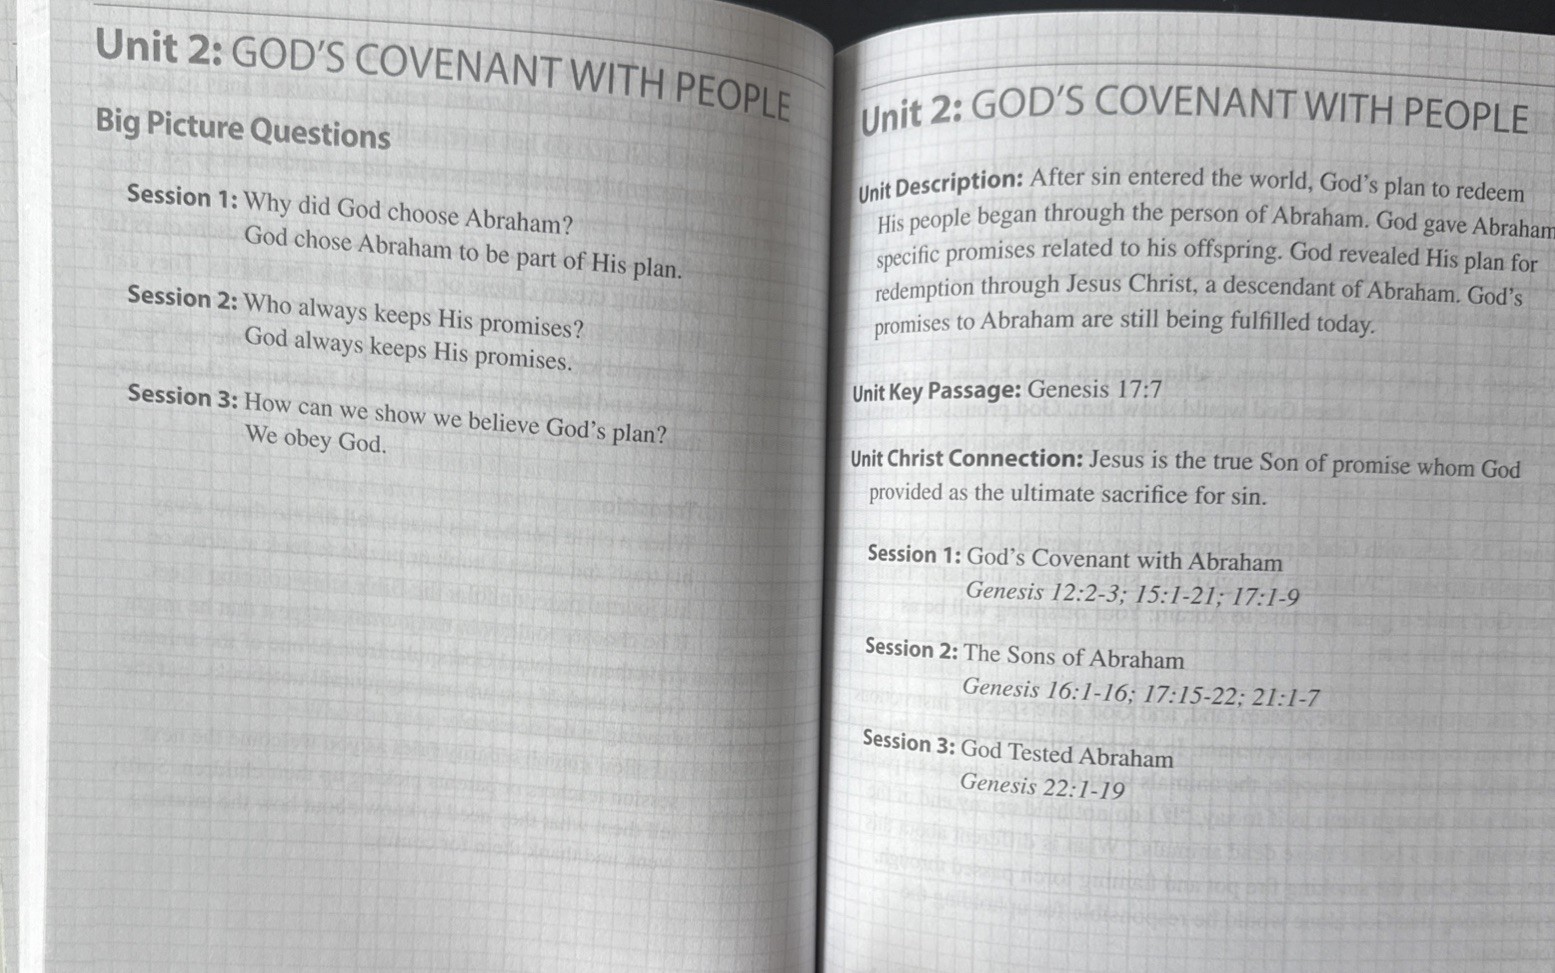 Unit 2: GOD'S COVENANT WITH PEOPLE
Big Picture Questions
Session 1: Why did God choose Abraham?
God chose Abraham to be part of His plan.
Session 2: Who always keeps His promises?
God always keeps His promises.
Session 3: How can we show we believe God's plan?
We obey God.
Unit 2: GOD'S COVENANT WITH PEOPLE
Unit Description: After sin entered the world, God's plan to redeem
His people began through the person of Abraham. God gave Abraham
specific promises related to his offspring. God revealed His plan for
redemption through Jesus Christ, a descendant of Abraham. God's
promises to Abraham are still being fulfilled today.
Unit Key Passage: Genesis 17:7
Unit Christ Connection: Jesus is the true Son of promise whom God
provided as the ultimate sacrifice for sin.
Session 1: God's Covenant with Abraham
Genesis 12:2-3; 15:1-21; 17:1-9
Session 2: The Sons of Abraham
Genesis 16:1-16; 17:15-22; 21:1-7
Session 3: God Tested Abraham
Genesis 22:1-19